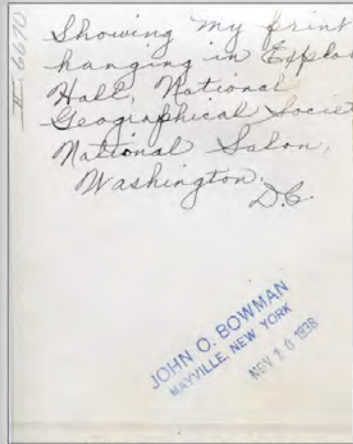 II-6670
Showing my print
hanging in Explo
Hall, National
Geographical Societ
National Salon,
Washington.
D.C.
JOHN O. BOWMAN
MAYVILLE, NEW YORK
NOV 10 1938